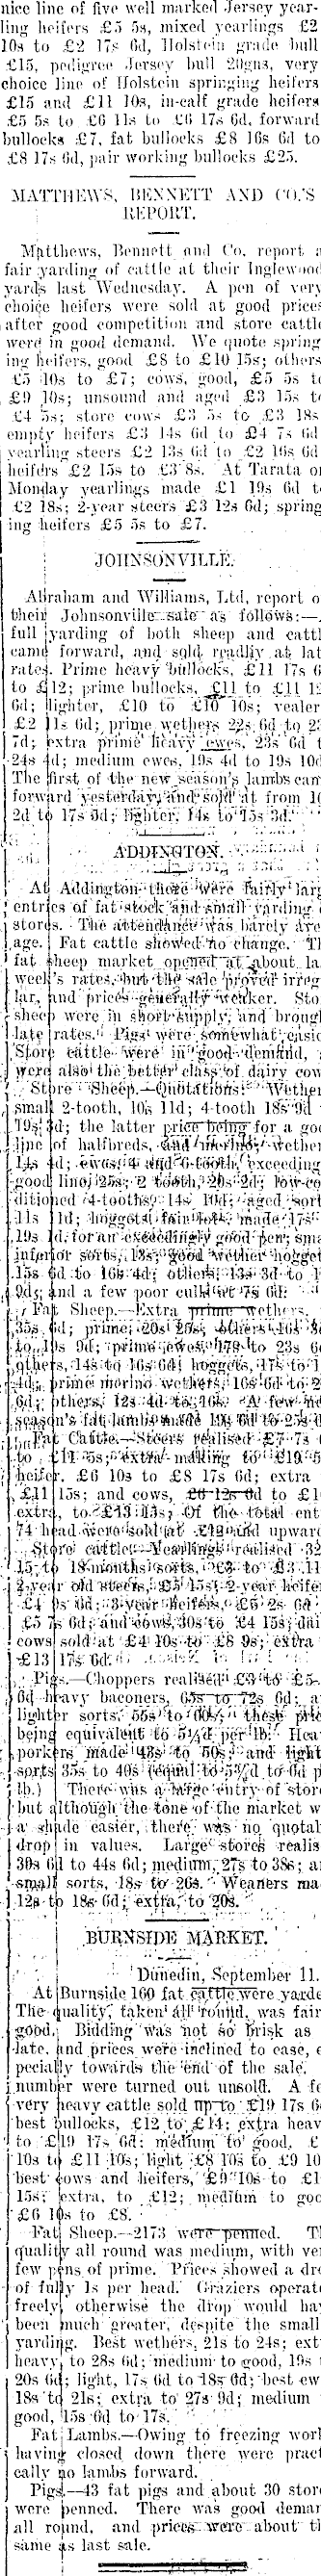 nice line of five well marked Jersey year-
ling heifers £5 5s, mixed yearlings £2
10s to £2 17s 6d, Holstein grade bull
£15, pedigree Jersey bull 20gns, very
choice line of Holstein springing heifers
£15 and £11 10s, in-calf grade heifers
£5 5s to £6 11s to £6 17s 6d, forward
bullocks £7, fat bullocks £8 16s 6d to
£8 17s 6d, pair working bullocks £25.
MATTHEWS, BENNETT AND CO.'S
REPORT.
Matthews, Bennett and Co. report a
fair yarding of cattle at their Inglewood
yards last Wednesday. A pen of very
choice heifers were sold at good prices
after good competition and store cattle
were in good demand. We quote spring
ing heifers, good £8 to £10 15s; others
£5 10s to £7; cows, good, £5 5s to
£9 10s; unsound and aged £3 15s to
£4 5s; store cows £3 5s to £3 18s
empty heifers £3 14s 6d to £4 7s 6d
yearling steers £2 13s 6d to £2 16s 6d
heifers £2 15s to £3 8s. At Tarata on
Monday yearlings made £1 19s 6d t
£2 18s; 2-year steers £3 12s 6d; spring
ing heifers £5 5s to £7.
JOHNSONVILLE.
Abraham and Williams, Ltd, report o
their Johnsonville sale as follows:—
full yarding of both sheep and cattl
came forward, and sold readily at lat
rates. Prime heavy bullocks, £11 17s 6
to £12; prime bullocks, £11 to £11 12
6d; lighter, £10 to £10 10s; vealer
£2 11s 6d; prime wethers 22s 6d to 2
7d; extra prime heavy ewes, 23s 6d t
24s 4d; medium ewes, 19s 4d to 19s 10d
The first of the new season's lambs cam
forward yesterday, and sold at from 16
2d to 17s 3d; lighter, 14s to 15s 3d.
ADDINGTON.
At Addington there were fairly larg
entries of fat stock and small yarding o
stores. The attendance was barely ave
age. Fat cattle showed no change. Th
fat sheep market opened at about la
week's rates, but the sale proved irreg
lar, and prices generally weaker. Sto
sheep were in short supply, and broug
late rates. Pigs were somewhat easie
Store cattle were in good demand,
were also the better class of dairy cow
Store Sheep.—Quotations: Wether
small 2-tooth, 10s 11d; 4-tooth 18s 9d
19s 3d; the latter price being for a goo
line of halfbreds, and merino wether
14s 4d; ewes, 4 and 6-tooth, exceeding
good line, 25s; 2 tooth, 20s 2d; low-co
ditioned 4-tooths, 14s 10d; aged sort
11s 1d; hoggets, fair lots, made 17s
19s 1d, for an exceedingly good pen; sma
inferior sorts, 13s; good wether hogget
15s 6d to 16s 4d; others, 13s 3d to 1
9d; and a few poor culls at 7s 6d.
Fat Sheep.—Extra prime wethers,
35s 6d; prime, 20s 26s; others 16s 3
to 19s 9d; prime ewes 17s to 23s 6
others, 14s to 16s 6d; hoggets, 17s to 1
4d; prime merino wethers, 16s 6d to 2
6d; others, 12s 4d to 16s. A few ne
season's fat lambs made 19s 6d to 25s 6
Fat Cattle.—Steers realised £7 7s
to £11 5s; extra making to £19 5
heifer, £6 10s to £8 17s 6d; extra
£11 15s; and cows, £6 12s 6d to £1
extra, to £13 15s; Of the total ent
74 head were sold at £12 and upward
Store cattle.—Yearlings realised 32
15 to 18 months sorts, £3 to £3 11
2-year old steers, £5 15s; 2-year heife
£4 9s 6d; 3-year heifers, £5 2s 6d
£5 7s 6d; and cows, 30s to £4 15s; dai
cows sold at £4 10s to £8 9s; extra
£13 17s 6d.
Pigs.—Choppers realised £3 to £5
6d heavy baconers, 65s to 72s 6d; a
lighter sorts, 55s to 60s; these pric
being equivalent to 5¼d per lb. Hea
porkers made 43s to 50s; and light
sorts 35s to 40s (equal to 5½d to 6d p
lb.) There was a large entry of store
but although the tone of the market w
a shade easier, there was no quotab
drop in values. Large stores realis
39s 6d to 44s 6d; medium, 27s to 38s; a
small sorts, 18s to 26s. Weaners ma
12s to 18s 6d; extra, to 20s.
BURNSIDE MARKET.
Dunedin, September 11.
At Burnside 160 fat cattle were yarde
The quality, taken all round, was fair
good. Bidding was not so brisk as
late, and prices were inclined to ease, e
pecially towards the end of the sale.
number were turned out unsold. A fe
very heavy cattle sold up to £19 17s 6
best bullocks, £12 to £14; extra heav
to £19 17s 6d; medium to good, £
10s to £11 10s; light £8 10s to £9 10
best cows and heifers, £9 10s to £1
15s; extra, to £12; medium to goo
£6 10s to £8.
Fat Sheep.—2173 were penned. Th
quality all round was medium, with ve
few pens of prime. Prices showed a dro
of fully 1s per head. Graziers operate
freely, otherwise the drop would hav
been much greater, despite the small
yarding. Best wethers, 21s to 24s; ext
heavy, to 28s 6d; medium to good, 19s
20s 6d; light, 17s 6d to 18s 6d; best ew
18s to 21s; extra to 27s 9d; medium
good, 15s 6d to 17s.
Fat Lambs.—Owing to freezing work
having closed down there were pract
cally no lambs forward.
Pigs.—43 fat pigs and about 30 store
were penned. There was good deman
all round, and prices were about th
same as last sale.